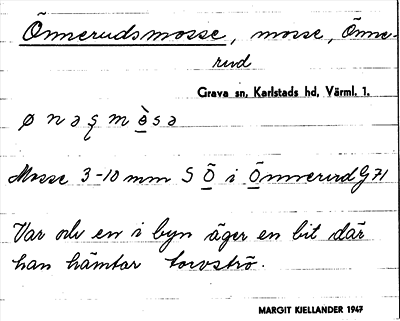 Önnerudsmosse, mosse, Önne-
rud
Grava sn, Karlstads hd, Värml. l.
ø n ə ʂ m ò s ə
Mosse 3-10 mm S Ö i Önnerud G 71
Var och en i byn äger en bit där
han hämtar torvströ.
MARGIT KJELLANDER 1947